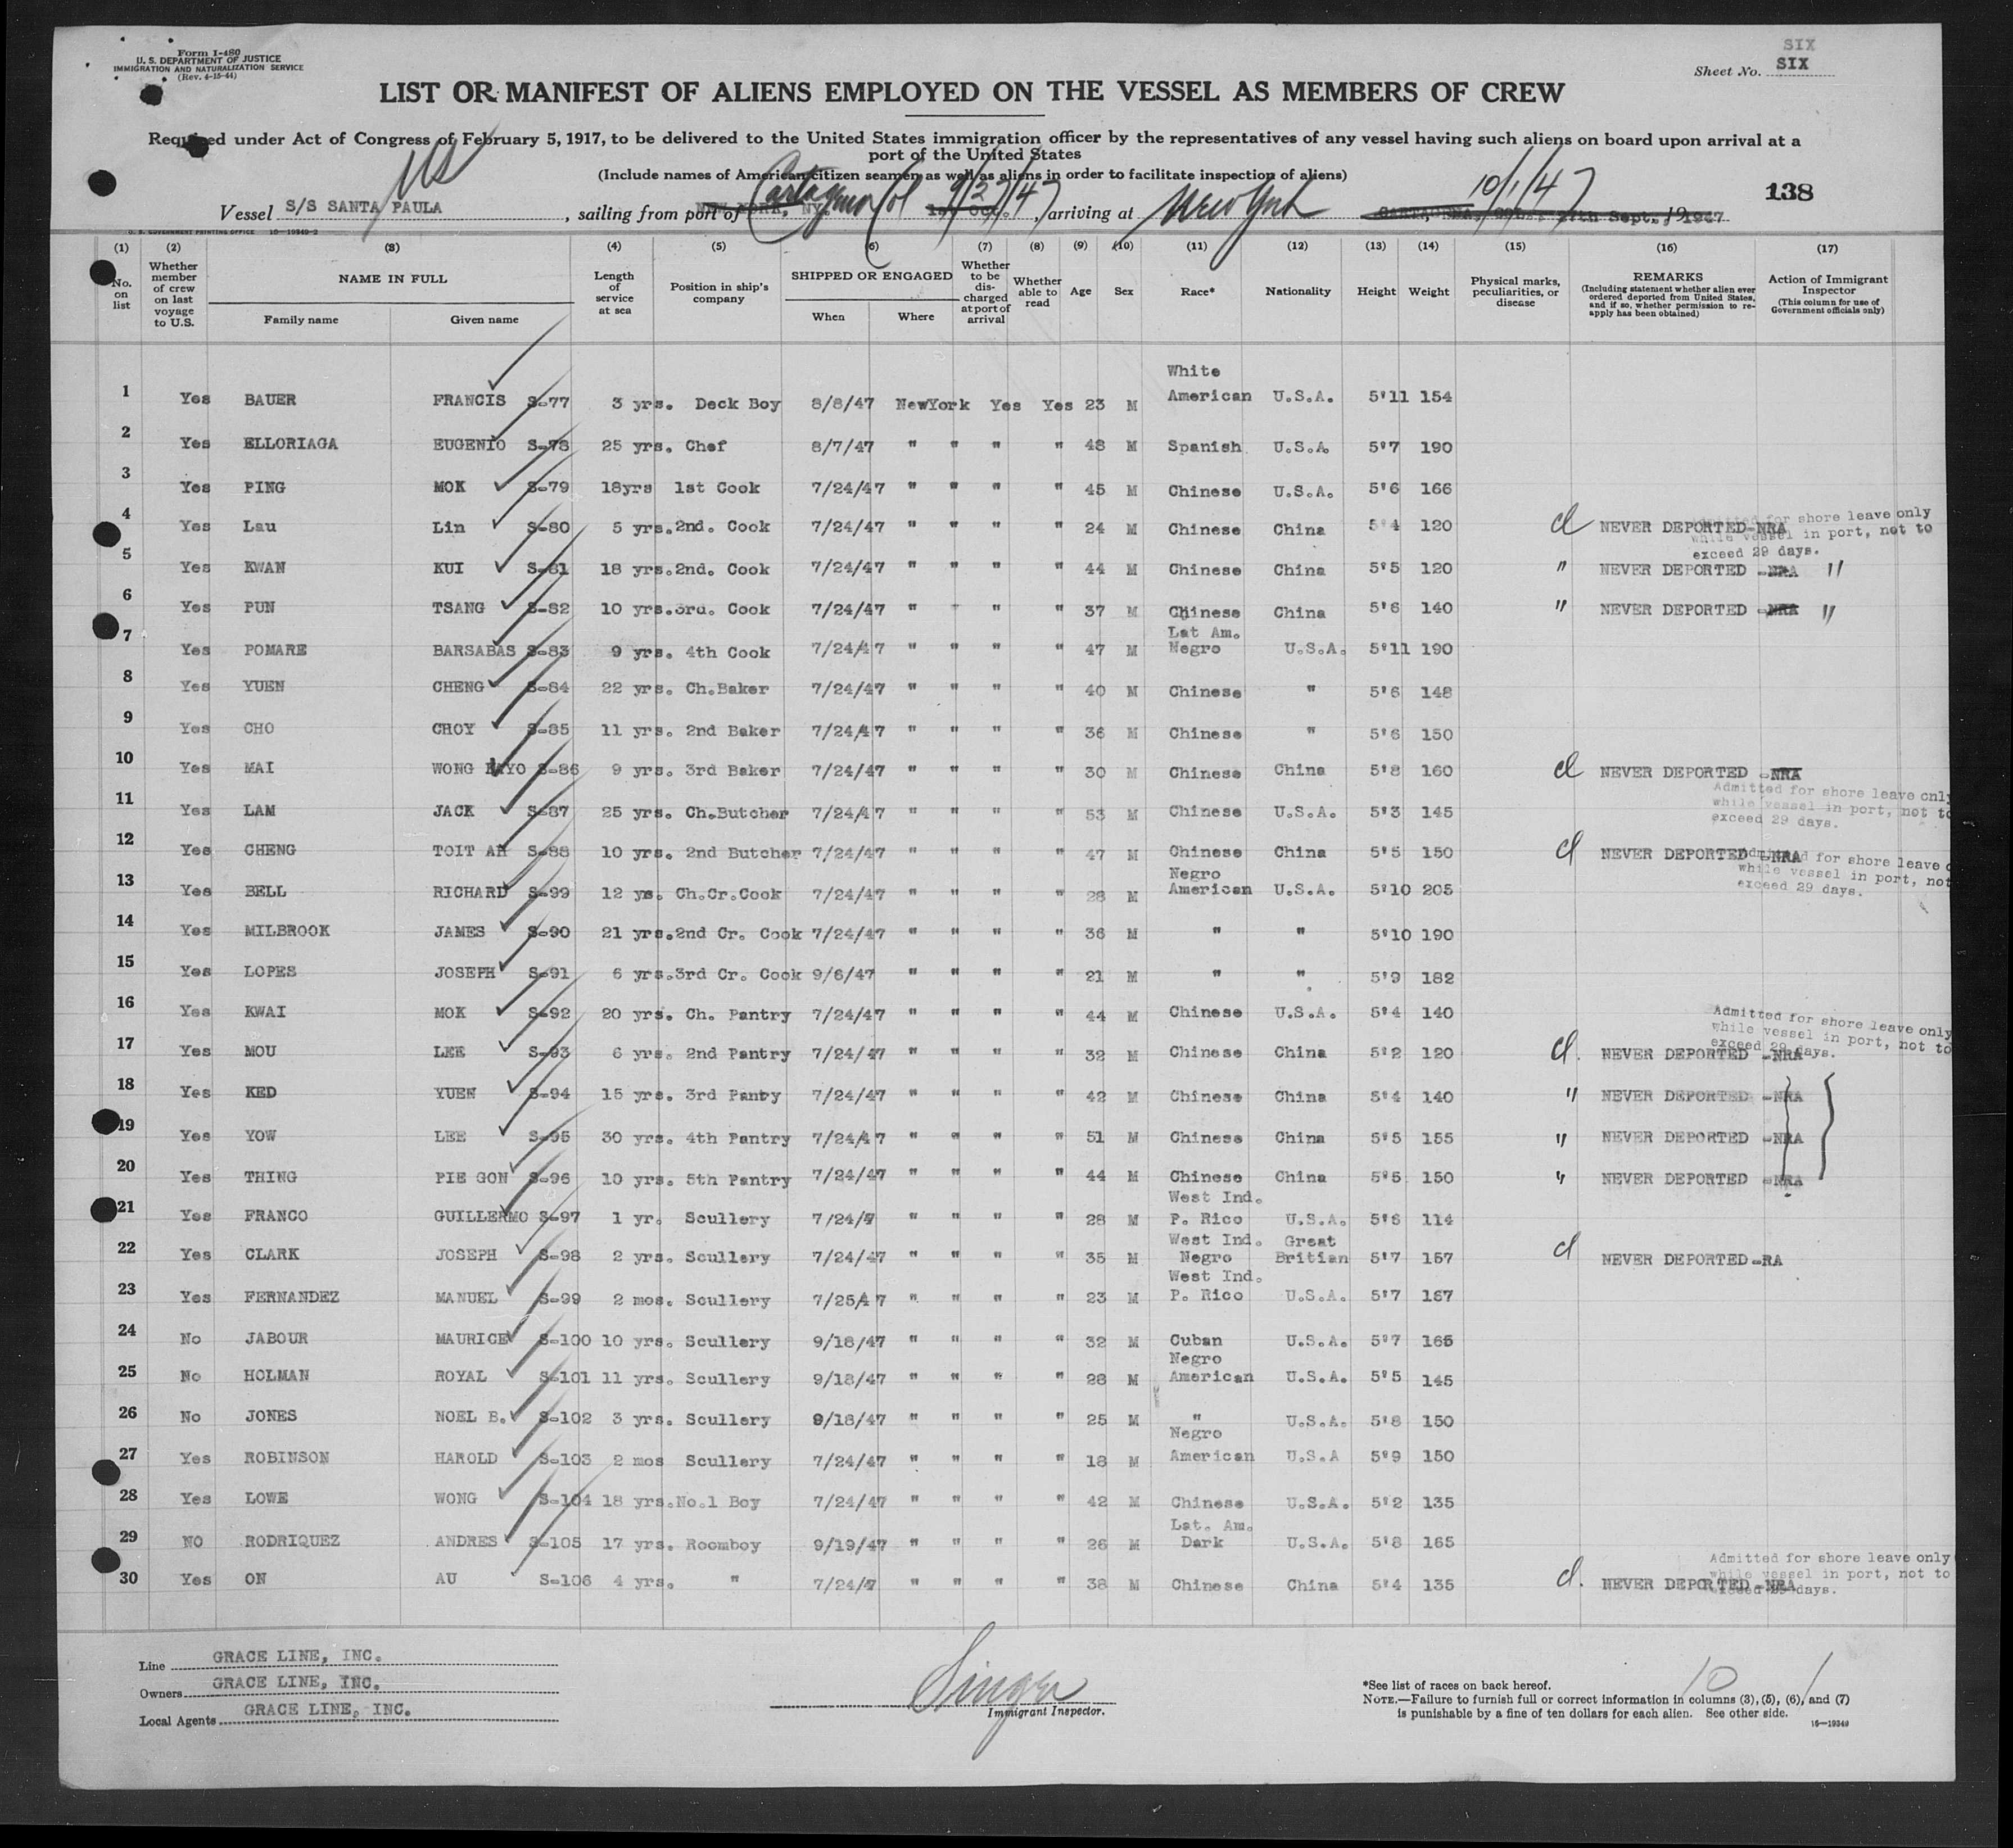 Form I-480
U. S. DEPARTMENT OF JUSTICE
IMMIGRATION AND NATURALIZATION SERVICE
(Rev. 4-15-44)
SIX
Sheet No. SIX
LIST OR MANIFEST OF ALIENS EMPLOYED ON THE VESSEL AS MEMBERS OF CREW
Required under Act of Congress of February 5, 1917, to be delivered to the United States immigration officer by the representatives of any vessel having such aliens on board upon arrival at a
port of the United States
(Include names of American citizen seamen as well as aliens in order to facilitate inspection of aliens)
US
138
Vessel S/S SANTA PAULA, sailing from port of NEW YORK, NY. Cartagena Col 9/27/47, arriving at New York 10/1/47 CARTAGENA, Sept., 1947
U. S. GOVERNMENT PRINTING OFFICE 16—19349-2
(1) (2) (3) (4) (5) (6) (7) (8) (9) (10) (11) (12) (13) (14) (15) (16) (17)
No. on list
Whether member of crew on last voyage to U.S.
NAME IN FULL
Family name
Given name
Length of service at sea
Position in ship's company
SHIPPED OR ENGAGED
When
Where
Whether to be discharged at port of arrival
Whether able to read
Age
Sex
Race*
Nationality
Height
Weight
Physical marks, peculiarities, or disease
REMARKS
(Including statement whether alien ever ordered deported from United States, and if so, whether permission to reapply has been obtained)
Action of Immigrant Inspector
(This column for use of Government officials only)
1 Yes BAUER FRANCIS S-77 3 yrs. Deck Boy 8/8/47 NewYork Yes Yes 23 M White American U.S.A. 5'11 154
2 Yes ELLORIAGA EUGENIO S-78 25 yrs. Chef 8/7/47 " " " " 48 M Spanish U.S.A. 5'7 190
3 Yes PING MOK S-79 18yrs 1st Cook 7/24/47 " " " " 45 M Chinese U.S.A. 5'6 166
4 Yes Lau Lin S-80 5 yrs. 2nd. Cook 7/24/47 " " " " 24 M Chinese China 5'4 120 cl NEVER DEPORTED-NRA Admitted for shore leave only while vessel in port, not to exceed 29 days.
5 Yes KWAN KUI S-81 18 yrs. 2nd. Cook 7/24/47 " " " " 44 M Chinese China 5'5 120 " NEVER DEPORTED -NRA "
6 Yes PUN TSANG S-82 10 yrs. 3rd. Cook 7/24/47 " " " " 37 M Chinese China 5'6 140 " NEVER DEPORTED -NRA "
7 Yes POMARE BARSABAS S-83 9 yrs. 4th Cook 7/24/47 " " " " 47 M Lat Am. Negro U.S.A. 5'11 190
8 Yes YUEN CHENG S-84 22 yrs. Ch.Baker 7/24/47 " " " " 40 M Chinese " 5'6 148
9 Yes CHO CHOY S-85 11 yrs. 2nd Baker 7/24/47 " " " " 36 M Chinese " 5'6 150
10 Yes MAI WONG KAYO S-86 9 yrs. 3rd Baker 7/24/47 " " " " 30 M Chinese China 5'8 160 cl NEVER DEPORTED -NRA Admitted for shore leave only while vessel in port, not to exceed 29 days.
11 Yes LAM JACK S-87 25 yrs. Ch.Butcher 7/24/47 " " " " 53 M Chinese U.S.A. 5'3 145
12 Yes CHENG TOIT AH S-88 10 yrs. 2nd Butcher 7/24/47 " " " " 47 M Chinese China 5'5 150 cl NEVER DEPORTED -NRA Admitted for shore leave while vessel in port, not exceed 29 days.
13 Yes BELL RICHARD S-99 12 ys. Ch.Cr.Cook 7/24/47 " " " " 28 M Negro American U.S.A. 5'10 205
14 Yes MILBROOK JAMES S-90 21 yrs. 2nd Cr. Cook 7/24/47 " " " " 36 M " " 5'10 190
15 Yes LOPES JOSEPH S-91 6 yrs. 3rd Cr. Cook 9/6/47 " " " " 21 M " " 5'9 182
16 Yes KWAI MOK S-92 20 yrs. Ch. Pantry 7/24/47 " " " " 44 M Chinese U.S.A. 5'4 140
17 Yes MOU LEE S-93 6 yrs. 2nd Pantry 7/24/47 " " " " 32 M Chinese China 5'2 120 cl. NEVER DEPORTED -NRA Admitted for shore leave only while vessel in port, not to exceed 29 days.
18 Yes KED YUEN S-94 15 yrs. 3rd Panty 7/24/47 " " " " 42 M Chinese China 5'4 140 " NEVER DEPORTED -NRA
19 Yes YOW LEE S-95 30 yrs. 4th Pantry 7/24/47 " " " " 51 M Chinese China 5'5 155 " NEVER DEPORTED -NRA
20 Yes THING PIE GON S-96 10 yrs. 5th Pantry 7/24/47 " " " " 44 M Chinese China 5'5 150 " NEVER DEPORTED -NRA
21 Yes FRANCO GUILLERMO S-97 1 yr. Scullery 7/24/7 " " " " 28 M West Ind. P. Rico U.S.A. 5'6 114
22 Yes CLARK JOSEPH S-98 2 yrs. Scullery 7/24/47 " " " " 35 M West Ind. Negro Great Britian 5'7 157 cl NEVER DEPORTED-RA
23 Yes FERNANDEZ MANUEL S-99 2 mos. Scullery 7/25/47 " " " " 23 M West Ind. P. Rico U.S.A. 5'7 167
24 No JABOUR MAURICE S-100 10 yrs. Scullery 9/18/47 " " " " 32 M Cuban U.S.A. 5'7 165
25 No HOLMAN ROYAL S-101 11 yrs. Scullery 9/18/47 " " " " 28 M Negro American U.S.A. 5'5 145
26 No JONES NOEL B. S-102 3 yrs. Scullery 9/18/47 " " " " 25 M " U.S.A. 5'8 150
27 Yes ROBINSON HAROLD S-103 2 mos Scullery 7/24/47 " " " " 18 M Negro American U.S.A 5'9 150
28 Yes LOWE WONG S-104 18 yrs. No.1 Boy 7/24/47 " " " " 42 M Chinese U.S.A. 5'2 135
29 NO RODRIQUEZ ANDRES S-105 17 yrs. Roomboy 9/19/47 " " " " 26 M Lat. Am. Dark U.S.A. 5'8 165
30 Yes ON AU S-106 4 yrs. " 7/24/7 " " " " 38 M Chinese China 5'4 135 cl. NEVER DEPORTED -NRA Admitted for shore leave only while vessel in port, not to exceed 29 days.
Line GRACE LINE, INC.
Owners GRACE LINE, INC.
Local Agents GRACE LINE, INC.
Singer
Immigrant Inspector.
10 1
*See list of races on back hereof.
NOTE.—Failure to furnish full or correct information in columns (3), (5), (6), and (7)
is punishable by a fine of ten dollars for each alien. See other side.
16—19349